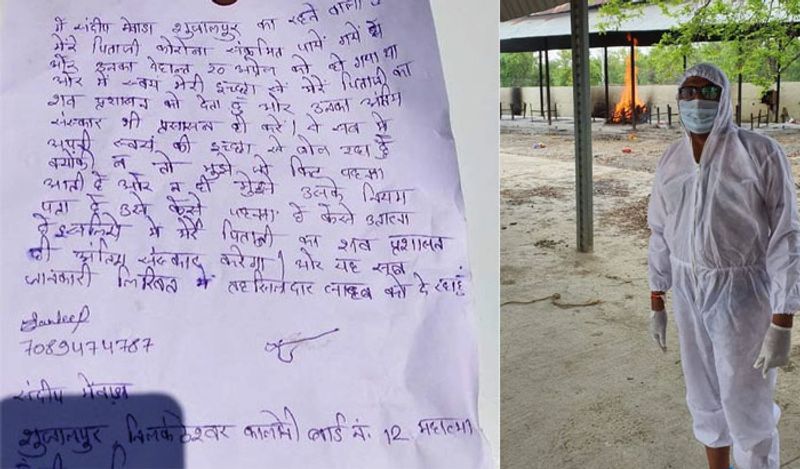 मैं संदीप मेवाडा शुजालपुर का रहने वाला
मेरे पिताजी कोरोना संक्रमित पाये गये थे
और उनका देहान्त 20 अप्रेल को हो गया था
और मैं स्वयं मेरी इच्छा से मेरे पिताजी का
शव प्रशासन को देता हूं और उनका अंतिम
संस्कार भी प्रशासन ही करे। ये सब मैं
अपनी स्वयं की इच्छा से बोल रहा हूँ
क्योकी न तो मुझे पी किट पहनना
आती है और न ही मुझे उसके नियम
पता है उसे कैसे पहनना है कैसे उतारना
है इसलिये में मेरे पिताजी का शव प्रशासन
ही अंतिम संस्कार करेगा। और यह सब
जानकारी लिखित में तहसिलदार साहब को दे रहा हुं
Sandeep
7089474787
संदीप मेवाडा
शुजालपुर, कालोनी वार्ड नं. 12 महात्मा